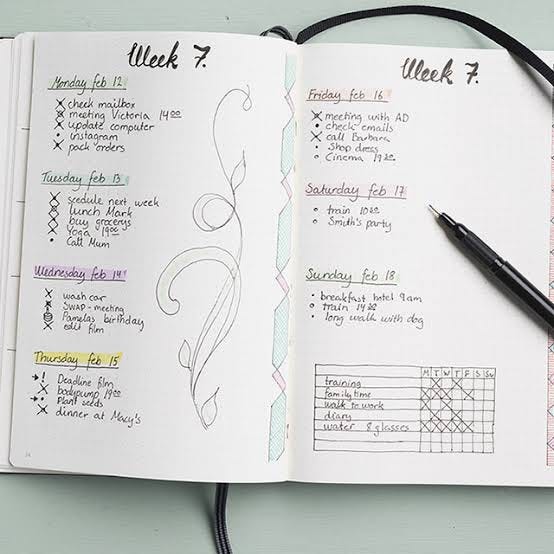 Week 7.
Monday feb 12
check mailbox
meeting Victoria 14:00
update computer
instagram
pack orders
Tuesday feb 13
scedule next week
lunch Mark
buy grocerys
Yoga 19:00
Call Mum
Wednesday feb 14
wash car
SWAP-meeting
Pamelas birthday
edit film
Thursday feb 15
! Deadline film
bodypump 19:00
Plant seeds
dinner at Macy's
Week 7.
Friday feb 16
meeting with AD
check emails
call Barbara
Shop dress
Cinema
Saturday feb 17
train
Smith's party
Sunday feb 18
breakfast hotel 9am
train
long walk with dog
M T W T F S Su
training
family time
walk to work
diary
water 8 glasses